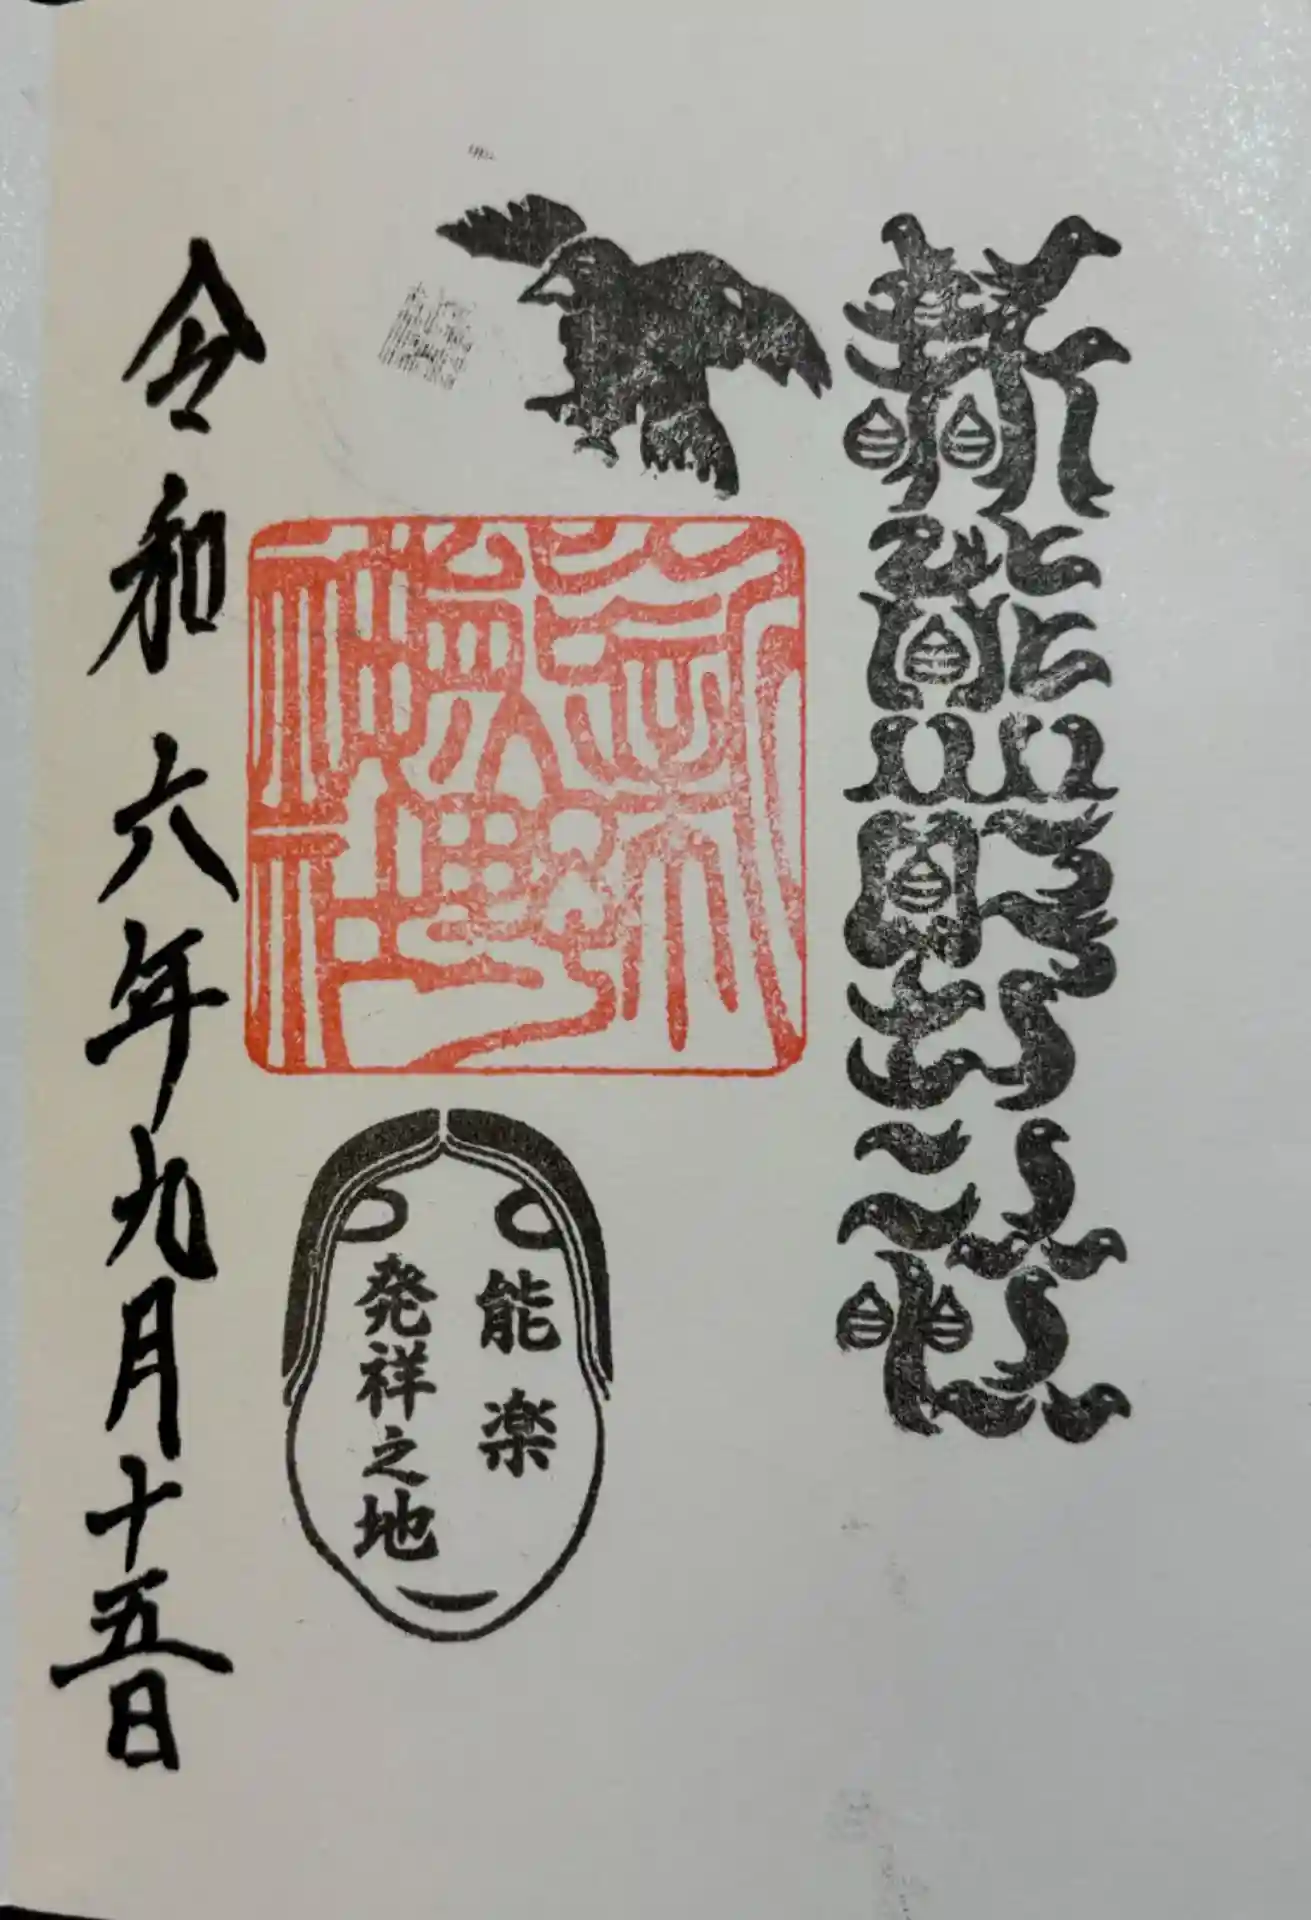 新熊野社
能楽
発祥之地
令和六年九月十五日